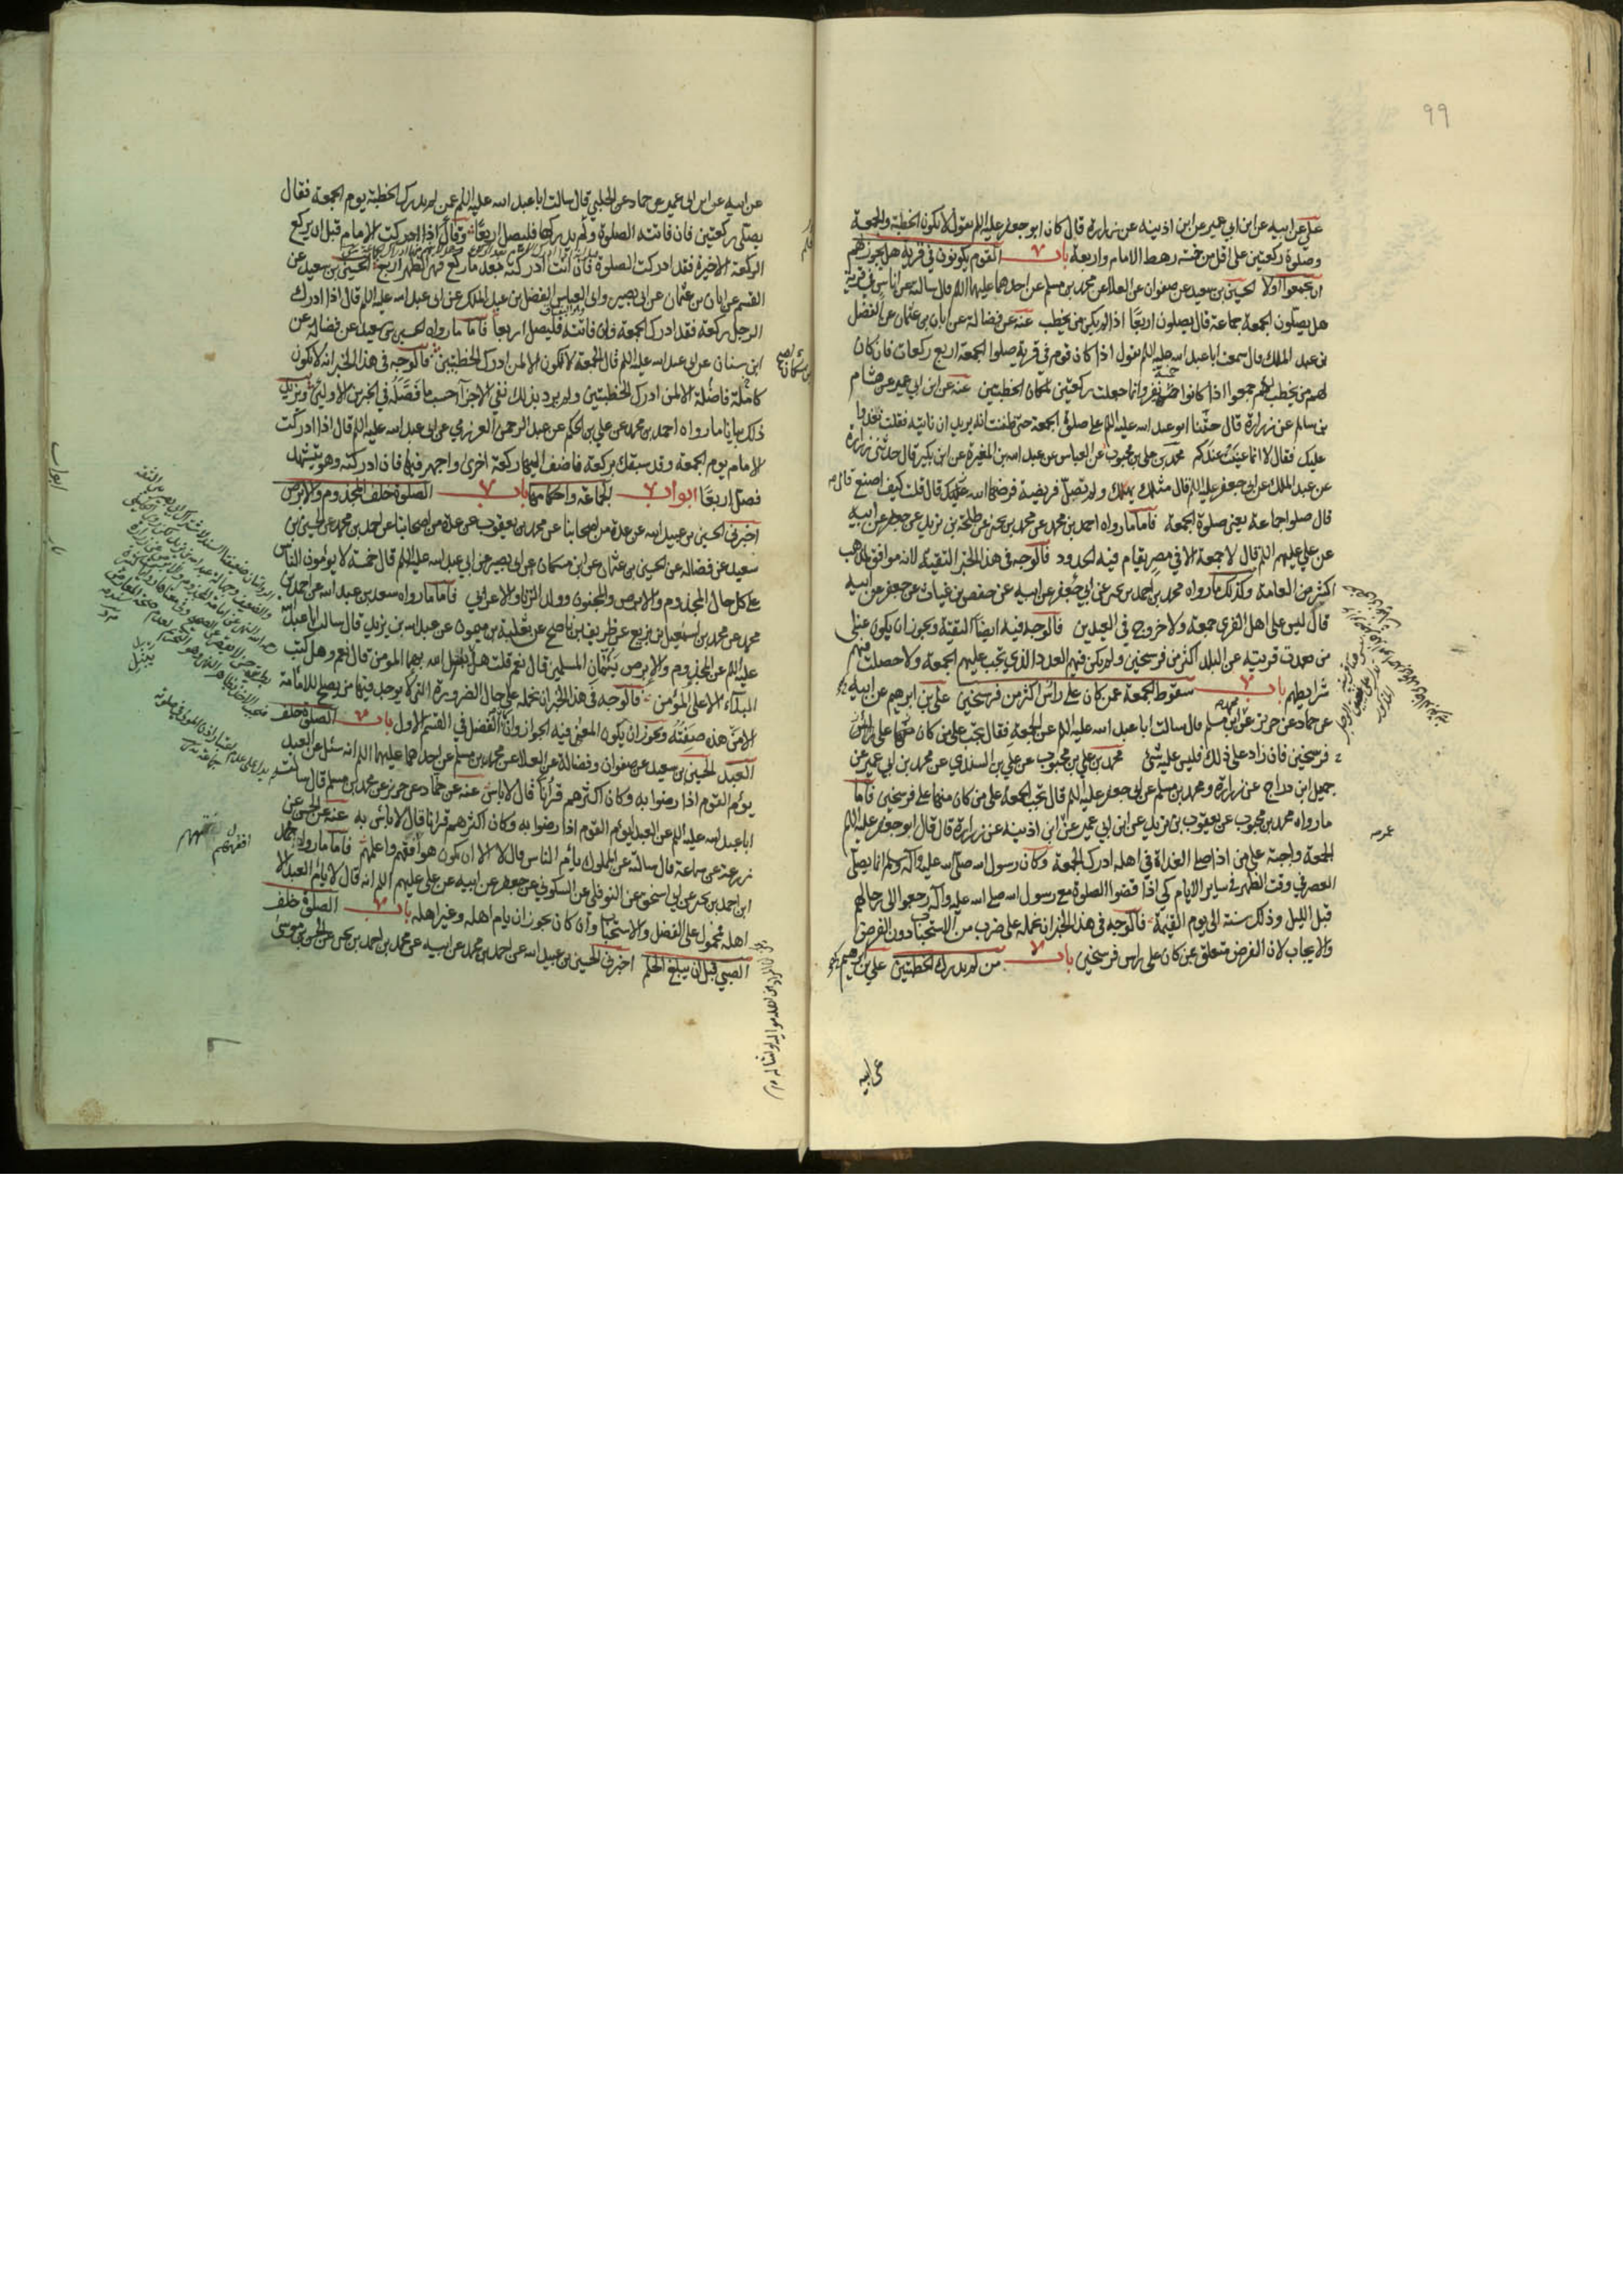 ٩٩
علي عن ابيه عن ابن ابي عمير عن ابن اذينه عن زرارة قال كان ابو جعفر عليه السلم يقول لا تكون الخطبة والجمعة
وصلوة ركعتين على اقل من خمسة رهط الامام واربعة باب القوم يكونون في قرية هل يجوز لهم
ان يجمعوا اولا الحسين بن سعيد عن صفوان عن العلا عن محمد بن مسلم عن احدهما عليهما السلم قال سالته عن اناس في قرية
هل يصلون الجمعة جماعة قال يصلون اربعا اذا لم يكن من يخطب عنه عن فضالة عن ابان بن عثمان عن الفضل
بن عبد الملك قال سمعت ابا عبد الله عليه السلم يقول اذا كان قوم في قرية صلوا الجمعة اربع ركعات فان كان
لهم من يخطب بهم جمعوا اذا كانوا خمسة نفر وانما جعلت ركعتين لمكان الخطبتين عنه عن ابن ابي عمير عن هشام
بن سالم عن زرارة قال حثنا ابو عبد الله عليه السلم على صلوة الجمعة حتى ظننت انه يريد ان ناتيه فقلت نغدوا
عليك فقال لا انما عنيت عندكم محمد بن علي بن محبوب عن العباس عن عبد الله بن المغيرة عن ابن بكير قال حدثني زرارة
عن عبد الملك عن ابي جعفر عليه السلم قال قال مثلك يهلك ولم تصل فريضة فرضها الله عليك قال قلت كيف اصنع قال
قال صلوا جماعة يعني صلوة الجمعة فاما ما رواه احمد بن محمد عن محمد بن يحيى عن طلحة بن زيد عن جعفر عن ابيه
عن علي عليهم السلم قال لا جمعة الا في مصر يقام فيه الحدود فالوجه في هذا الخبر التقية لانه موافق لمذهب
اكثر من العامة وكذلك ما رواه محمد بن احمد بن يحيى عن ابي جعفر عن ابيه عن حفص بن غياث عن جعفر عن ابيه
قال ليس على اهل القرى جمعة ولا خروج في العيدين فالوجه فيه ايضا التقية ويجوز ان يكون عنى
من بعدت قريته عن البلد اكثر من فرسخين ولم يكن فيهم العدد الذي يجب عليهم الجمعة ولا حصلت فيهم
شرايطهم باب سقوط الجمعة عمن كان على راس اكثر من فرسخين علي بن ابرهيم عن ابيه
عن حماد عن حريز عن ابن مسلم قال سالت ابا عبد الله عليه السلم عن الجمعة فقال تجب على من كان منها على راس
فرسخين فان زاد على ذلك فليس عليه شي محمد بن علي بن محبوب عن علي بن السندي عن محمد بن ابي عمير عن
جميل ابن دراج عن زرارة ومحمد بن مسلم عن ابي جعفر عليه السلم قال تجب الجمعة على من كان منها على فرسخين فاما
ما رواه محمد بن محبوب عن يعقوب بن يزيد عن ابن ابي عمير عن ابن اذينه عن زرارة قال قال ابو جعفر عليه السلم
الجمعة واجبة على من اذا صلى الغداة في اهله ادرك الجمعة وكان رسول الله صلى الله عليه وآله وسلم انما يصلي
العصر في وقت الظهر في ساير الايام كي اذا قضوا الصلوة مع رسول الله صلى الله عليه وآله رجعوا الى رحالهم
قبل الليل وذلك سنة الى يوم القيمة فالوجه في هذا الخبر ان نحمله على ضرب من الاستحباب دون الفرض
والايجاب لان الفرض متعلق عن كان على راس فرسخين باب من لم يدرك الخطبتين علي بن ابرهيم
عن ابيه
عن ابيه عن ابن ابي عمير عن حماد عن الحلبي قال سالت ابا عبد الله عليه السلم عمن لم يدرك الخطبة يوم الجمعة فقال
يصلي ركعتين فان فاتته الصلوة ولم يدركها فليصل اربعا وقال اذا ادركت الامام قبل ان يركع
الركعة الاخيرة فقد ادركت الصلوة فان انت ادركته بعد ما ركع فهي الظهر اربع الحسين بن سعيد عن
القسم عن ابان بن عثمان عن ابي بصير وابي العباس الفضل بن عبد الملك عن ابي عبد الله عليه السلم قال اذا ادرك
الرجل ركعة فقد ادرك الجمعة وان فاتته فليصل اربعا فاما ما رواه الحسين بن سعيد عن فضالة عن
ابن سنان عن ابي عبد الله عليه السلم قال الجمعة لا تكون الا لمن ادرك الخطبتين فالوجه في هذا الخبر انه لا يكون
كاملة فاضلة الا لمن ادرك الخطبتين ولم يرد بذلك نفي الاجزآ حسب ما فصله في الخبرين الاولين ويزيد
ذلك بيانا ما رواه احمد بن محمد عن علي بن الحكم عن عبد الرحمن العرزمي عن ابي عبد الله عليه السلم قال اذا ادركت
الامام يوم الجمعة وقد سبقك بركعة فاضف اليها ركعة اخرى واجهر فيها فان ادركته وهو يتشهد
فصل اربعا ابواب الجماعة واحكامها باب الصلوة خلف المجذوم والابرص
اخبرني الحسين بن عبيد الله عن عدة من اصحابنا عن محمد بن يعقوب عن عدة من اصحابنا عن احمد بن محمد عن الحسين بن
سعيد عن فضالة عن الحسين بن عثمان عن ابن مسكان عن ابي بصير عن ابي عبد الله عليه السلم قال خمسة لا يؤمون الناس
على كل حال المجذوم والابرص والمجنون وولد الزنا والاعرابي فاما ما رواه سعد بن عبد الله عن احمد بن
محمد عن محمد بن اسمعيل بن بزيع عن ظريف بن ناصح عن ثعلبة بن ميمون عن عبد الله بن يزيد قال سالت ابا عبد الله
عليه السلم عن المجذوم والابرص يؤمان المسلمين قال نعم قلت هل يبتلي الله بهما المومن قال نعم وهل كتب
البلآء الا على المؤمن فالوجه في هذا الخبر ان نحمله على حال الضرورة التي لا يوجد فيها من يصلح للامامة
الا من هذه صفته ويجوز ان يكون المعنى فيه الجواز وان الفضل في القسم الاول باب الصلوة خلف
العبد الحسين بن سعيد عن صفوان وفضالة عن العلا عن محمد بن مسلم عن احدهما عليهما السلم انه سئل عن العبد
يؤم القوم اذا رضوا به وكان اكثرهم قرآنا قال لا باس عنه عن حماد عن حريز عن محمد بن مسلم قال سالت
ابا عبد الله عليه السلم عن العبد يؤم القوم اذا رضوا به وكان اكثرهم قرانا قال لا باس به عنه عن الحسن عن
زرعة عن سماعة قال سالته عن المملوك يأم الناس قال لا الا ان يكون هو افقههم واعلمهم فاما ما رواه محمد
ابن احمد بن يحيى عن ابي اسحق عن النوفلي عن السكوني عن جعفر عن ابيه عن علي عليهم السلم انه قال لا يام العبد الا
اهله محمول على الفضل والاستحباب وان كان يجوز ان يام اهله وغير اهله باب الصلوة خلف
الصبي قبل ان يبلغ الحلم اخبرني الحسين بن عبيد الله عن احمد بن محمد عن ابيه عن محمد بن احمد بن يحيى عن الحسن بن موسى